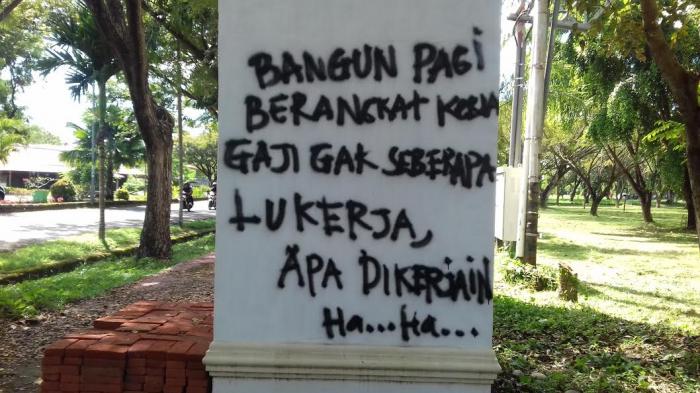 BANGUN PAGi
BERANGKAT KERJA
GAJI GAK SEBERAPA
LU KERJA,
APA DIKERJAIN
Ha...Ha...